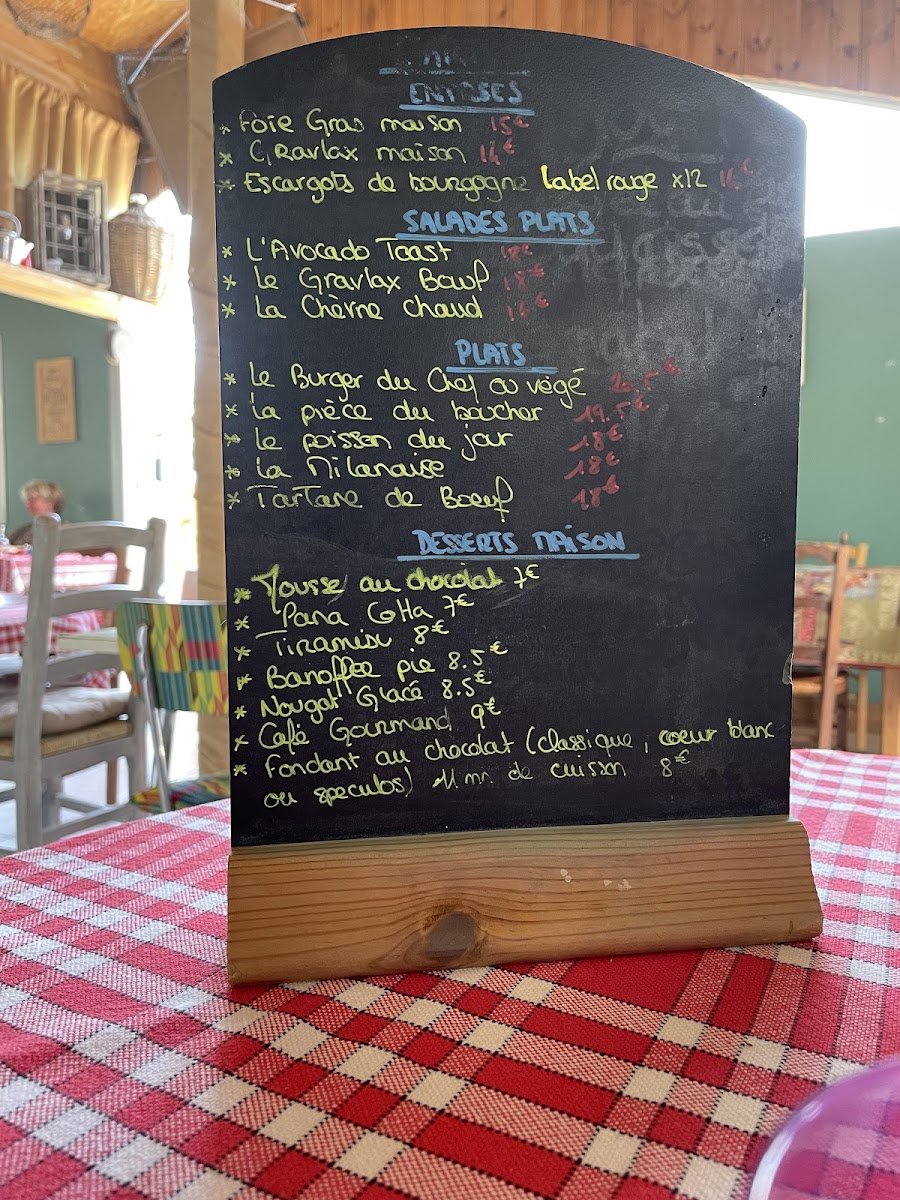 ENTRÉES
* Foie Gras maison 15€
* Gravlax maison 14€
* Escargots de bourgogne Label rouge x12 16€
SALADES PLATS
* L'Avocado Toast 18€
* Le Gravlax Bowl 18€
* La Chèvre Chaud 16€
PLATS
* Le Burger du Chef ou végé 20.5€
* La pièce du boucher 19.5€
* Le poisson du jour 18€
* La Milanaise 18€
* Tartare de Boeuf 18€
DESSERTS MAISON
* Mousse au chocolat 7€
* Pana Cotta 7€
* Tiramisu 8€
* Banoffee pie 8.5€
* Nougat Glacé 8.5€
* Café Gourmand 9€
* Fondant au chocolat (classique, coeur blanc
ou speculos) 11 mn. de cuisson 8€